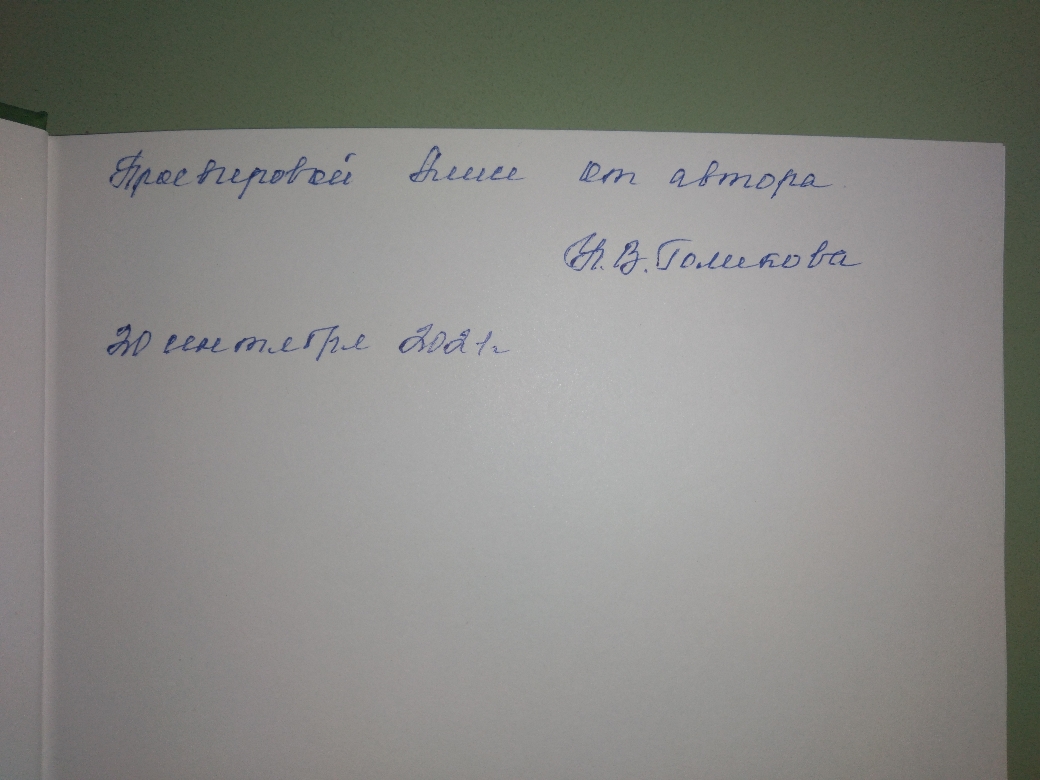 Просвировой Алисе от автора
Н.В. Голикова
20 сентября 2021г